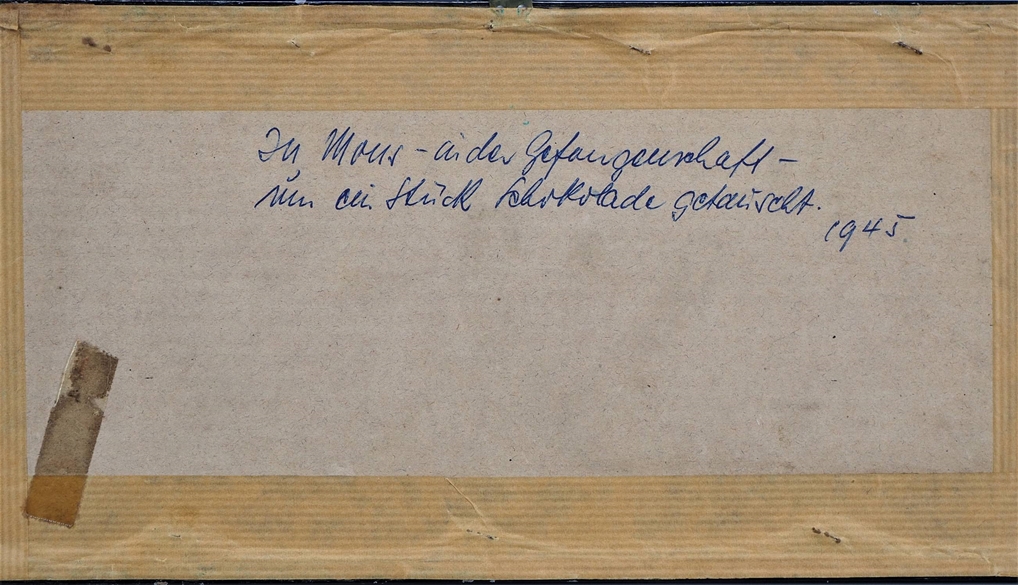 In Mons - in der Gefangenschaft -
um ein Stück Schokolade getauscht.
1945